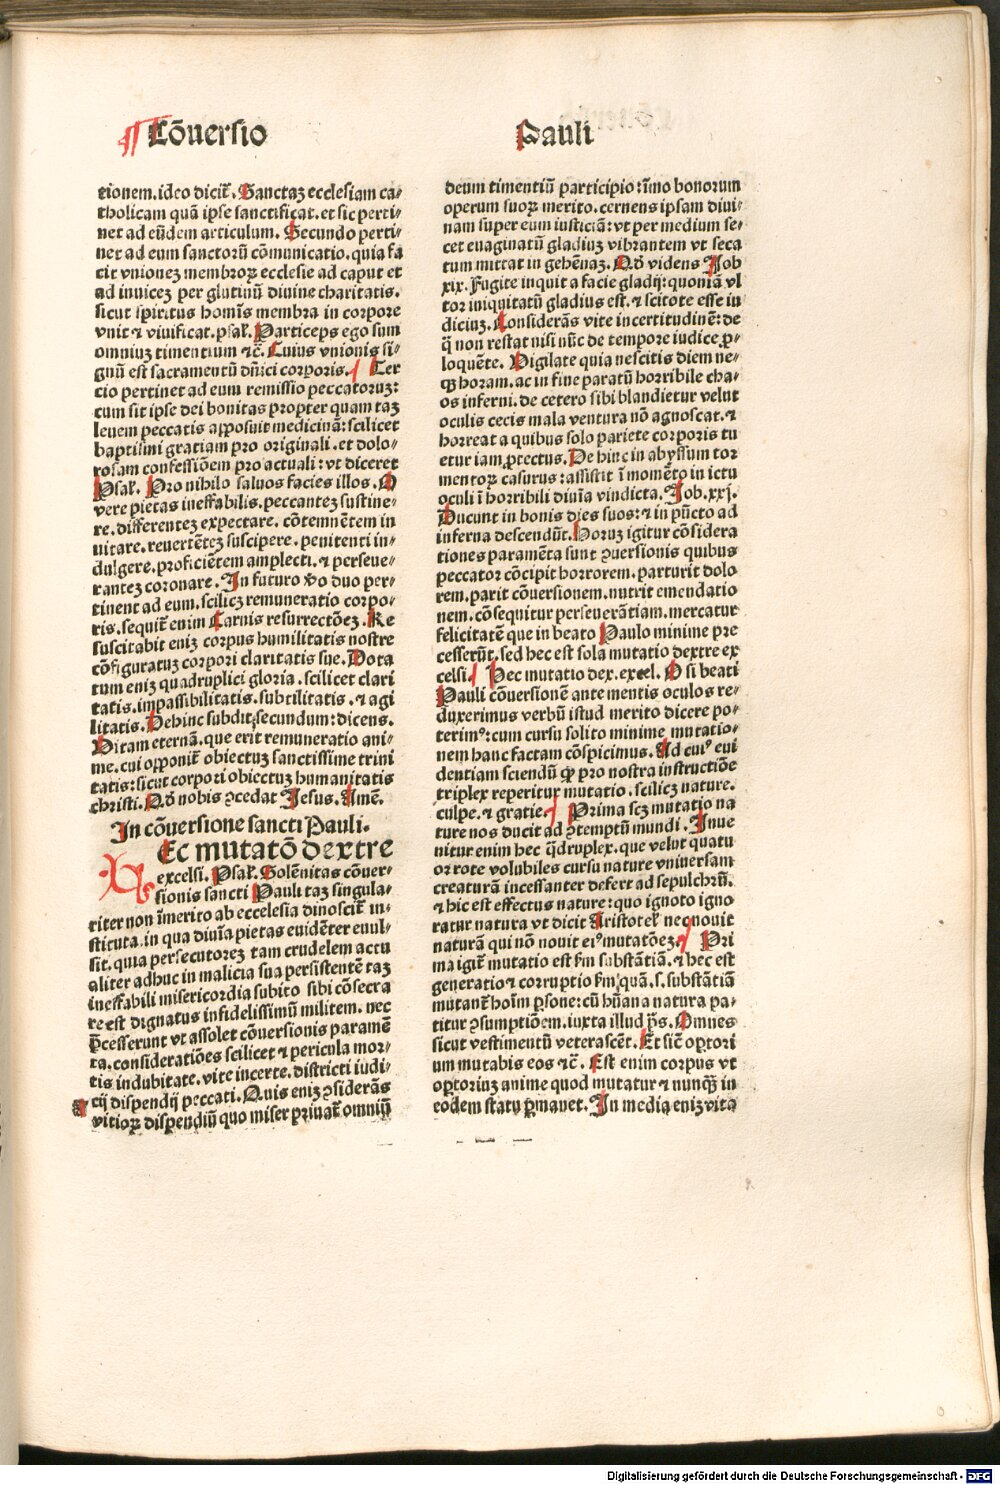 Cōuersio
Pauli
tionem.ideo dicit̄. Sanctaꝫ ecclesiam ca⸗
tholicam quā ipse sanctificat.et sic perti⸗
net ad eūdem articulum. Secundo perti⸗
net ad eum sanctorū cōmunicatio.quia fa
cit vnioneꝫ membroꝝ ecclesie ad caput et
ad inuiceꝫ per glutinū diuine charitatis.
sicut spiritus homīs membra in corpore
vnit ⁊ viuificat.psal̄. Particeps ego sum
omniuꝫ timentium ⁊c̄. Cuius vnionis si⸗
gnū est sacramentū dn̄ici corporis. Ter
cio pertinet ad eum remissio peccatoruꝫ:
cum sit ipse dei bonitas propter quam taꝫ
leuem peccatis apposuit medicinā: scilicet
baptismi gratiam pro originali.et dolo⸗
rosam confessiōem pro actuali: vt diceret
Psal̄. Pro nihilo saluos facies illos. O
vere pietas ineffabilis.peccanteꝫ sustine⸗
re.differenteꝫ expectare. cōtemnētem in
uitare.reuertēteꝫ suscipere.penitenti in⸗
dulgere.proficiētem amplecti.⁊ perseue⸗
ranteꝫ coronare. In futuro ꝟo duo per⸗
tinent ad eum.scilicꝫ remuneratio corpo⸗
ris.sequit̄ enim Carnis resurrectōeꝫ. Re
suscitabit eniꝫ corpus humilitatis nostre
cōfiguratuꝫ corpori claritatis sue. Dota
tum eniꝫ quadruplici gloria.scilicet clari
tatis.impassibilitatis.subtilitatis.⁊ agi
litatis. Dehinc subdit secundum: dicens.
Uitam eternā.que erit remuneratio ani⸗
me.cui opponit̄ obiectuꝫ sanctissime trini
tatis: sicut corpori obiectuꝫ humanitatis
christi. Qd̄ nobis ↄcedat Jesus. Amē.
In cōuersione sancti Pauli.
Ec mutatō dextre
excelsi. Psal̄. Solēnitas cōuer⸗
sionis sancti Pauli taꝫ singula⸗
riter non īmerito ab eccelesia dinoscit̄ in⸗
stituta.in qua diuīa pietas euidēter euul⸗
sit.quia persecutoreꝫ tam crudelem actu
aliter adhuc in malicia sua persistentē taꝫ
ineffabili misericordia subito sibi cōsecra
re est dignatus infidelissimū militem. nec
p̄cesserunt vt assolet cōuersionis paramē
ta.consideratiōes scilicet ⁊ pericula mor⸗
tis indubitate.vite incerte.districti iudi⸗
cij dispendij peccati. Quis eniꝫ ↄsiderās
vitioꝝ dispendiū quo miser priuat̄ omniū
deum timentiū participio: īmo bonorum
operum suoꝝ merito.cernens ipsam diui⸗
nam super eum iusticiā: vt per medium se⸗
cet euaginatū gladiuꝫ vibrantem vt seca
tum mittat in gehēnaꝫ. Qd̄ videns Job
xix. Fugite inquit a facie gladij: quoniā vl
tor iniquitatū gladius est.⁊ scitote esse in
diciuꝫ. Considerās vite incertitudinē: de
q̄ non restat nisi nūc de tempore iudice ꝓ⸗
loquēte. Uigilate quia nescitis diem ne⸗
qꝫ horam.ac in fine paratū horribile cha⸗
os inferni.de cetero sibi blandietur velut
oculis cecis mala ventura nō agnoscat.⁊
horreat a quibus solo pariete corporis tu
etur iam ꝓtectus. De hinc in abyssum tor
mentoꝝ casurus: assistit ī momēto in ictu
oculi ī horribili diuīa vindicta. Job.xxj.
Ducunt in bonis dies suos: ⁊ in pūcto ad
inferna descendūt. Horuꝫ igitur cōsidera
tiones paramēta sunt ↄuersionis quibus
peccator cōcipit horrorem.parturit dolo
rem.parit cōuersionem.nutrit emendatio
nem.cōsequitur perseuerātiam.mercatur
felicitatē que in beato Paulo minime pre
cesserūt.sed hec est sola mutatio dextre ex
celsi. Hec mutatio dex.excel. O si beati
Pauli cōuersionē ante mentis oculos re⸗
duxerimus verbū istud merito dicere po⸗
terimꝰ: cum cursu solito minime mutatio⸗
nem hanc factam cōspicimus. Ad cuiꝰ eui
dentiam sciendū ꝙ pro nostra instructiōe
triplex reperitur mutatio.scilicꝫ nature.
culpe.⁊ gratie. Prima scꝫ mutatio na
ture nos ducit ad ↄtemptū mundi. Inue
nitur enim hec q̄druplex.que velut quatu
or rote volubiles cursu nature vniuersam
creaturā incessanter defert ad sepulchrū.
⁊ hic est effectus nature: quo ignoto igno
ratur natura vt dicit Aristotel̄ nec nouit
naturā qui nō nouit eiꝰ mutatōeꝫ. Pri
ma igit̄ mutatio est ẜm substātiā.⁊ hec est
generatio ⁊ corruptio ẜm quā.s.substātiā
mutant̄ hoīm ꝑsone: cū hūana natura pa⸗
titur ↄsumptiōem.iuxta illud p̄s. Omnes
sicut vestimentū veterascēt. Et sic̄ optori
um mutabis eos ⁊c̄. Est enim corpus vt
optoriuꝫ anime quod mutatur ⁊ nunqꝫ̄ in
eodem statu ꝑmanet. In media eniꝫ vita
Digitalisierung gefördert durch die Deutsche Forschungsgemeinschaft - DFG